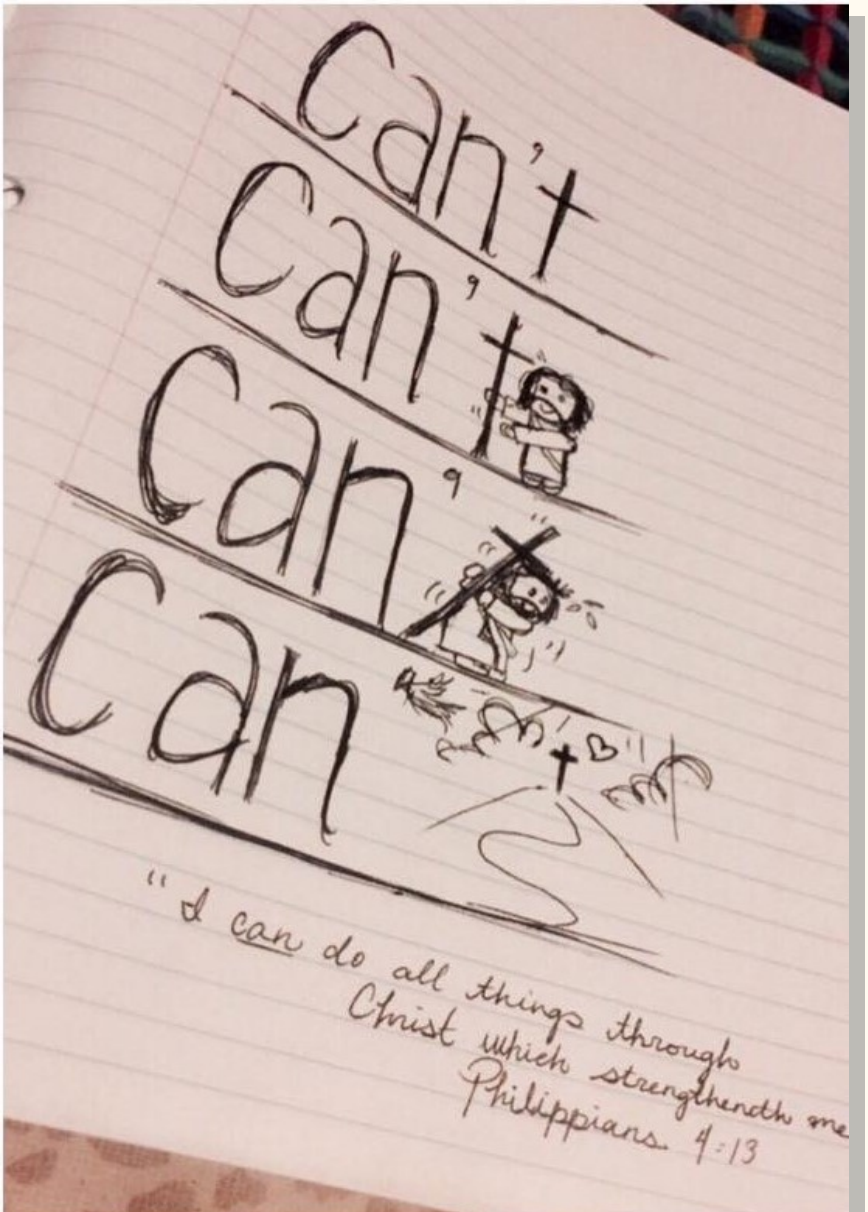 Can't
Can't
Can't
Can
"I can do all things through
Christ which strengthendth me
Philippians 4:13